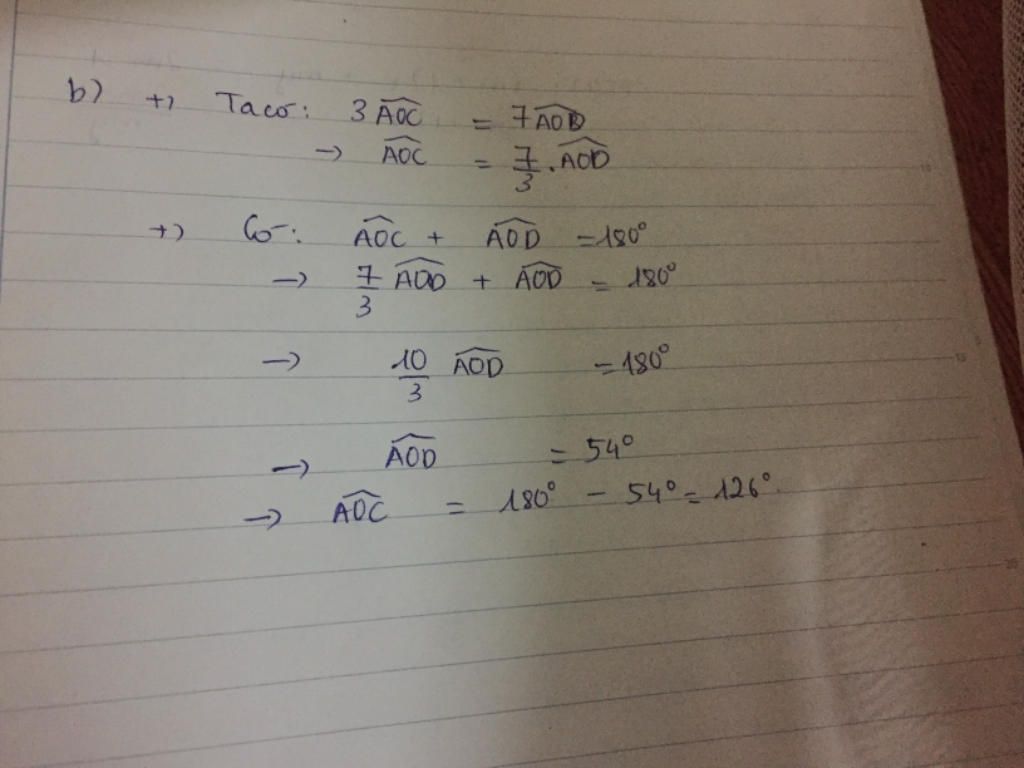 b) +) Ta có: 3 \widehat{AOC} = 7 \widehat{AOD}
→ \widehat{AOC} = \frac{7}{3} . \widehat{AOD}
+) Có: \widehat{AOC} + \widehat{AOD} = 180°
→ \frac{7}{3} \widehat{AOD} + \widehat{AOD} = 180°
→ \frac{10}{3} \widehat{AOD} = 180°
→ \widehat{AOD} = 54°
→ \widehat{AOC} = 180° - 54° = 126°.